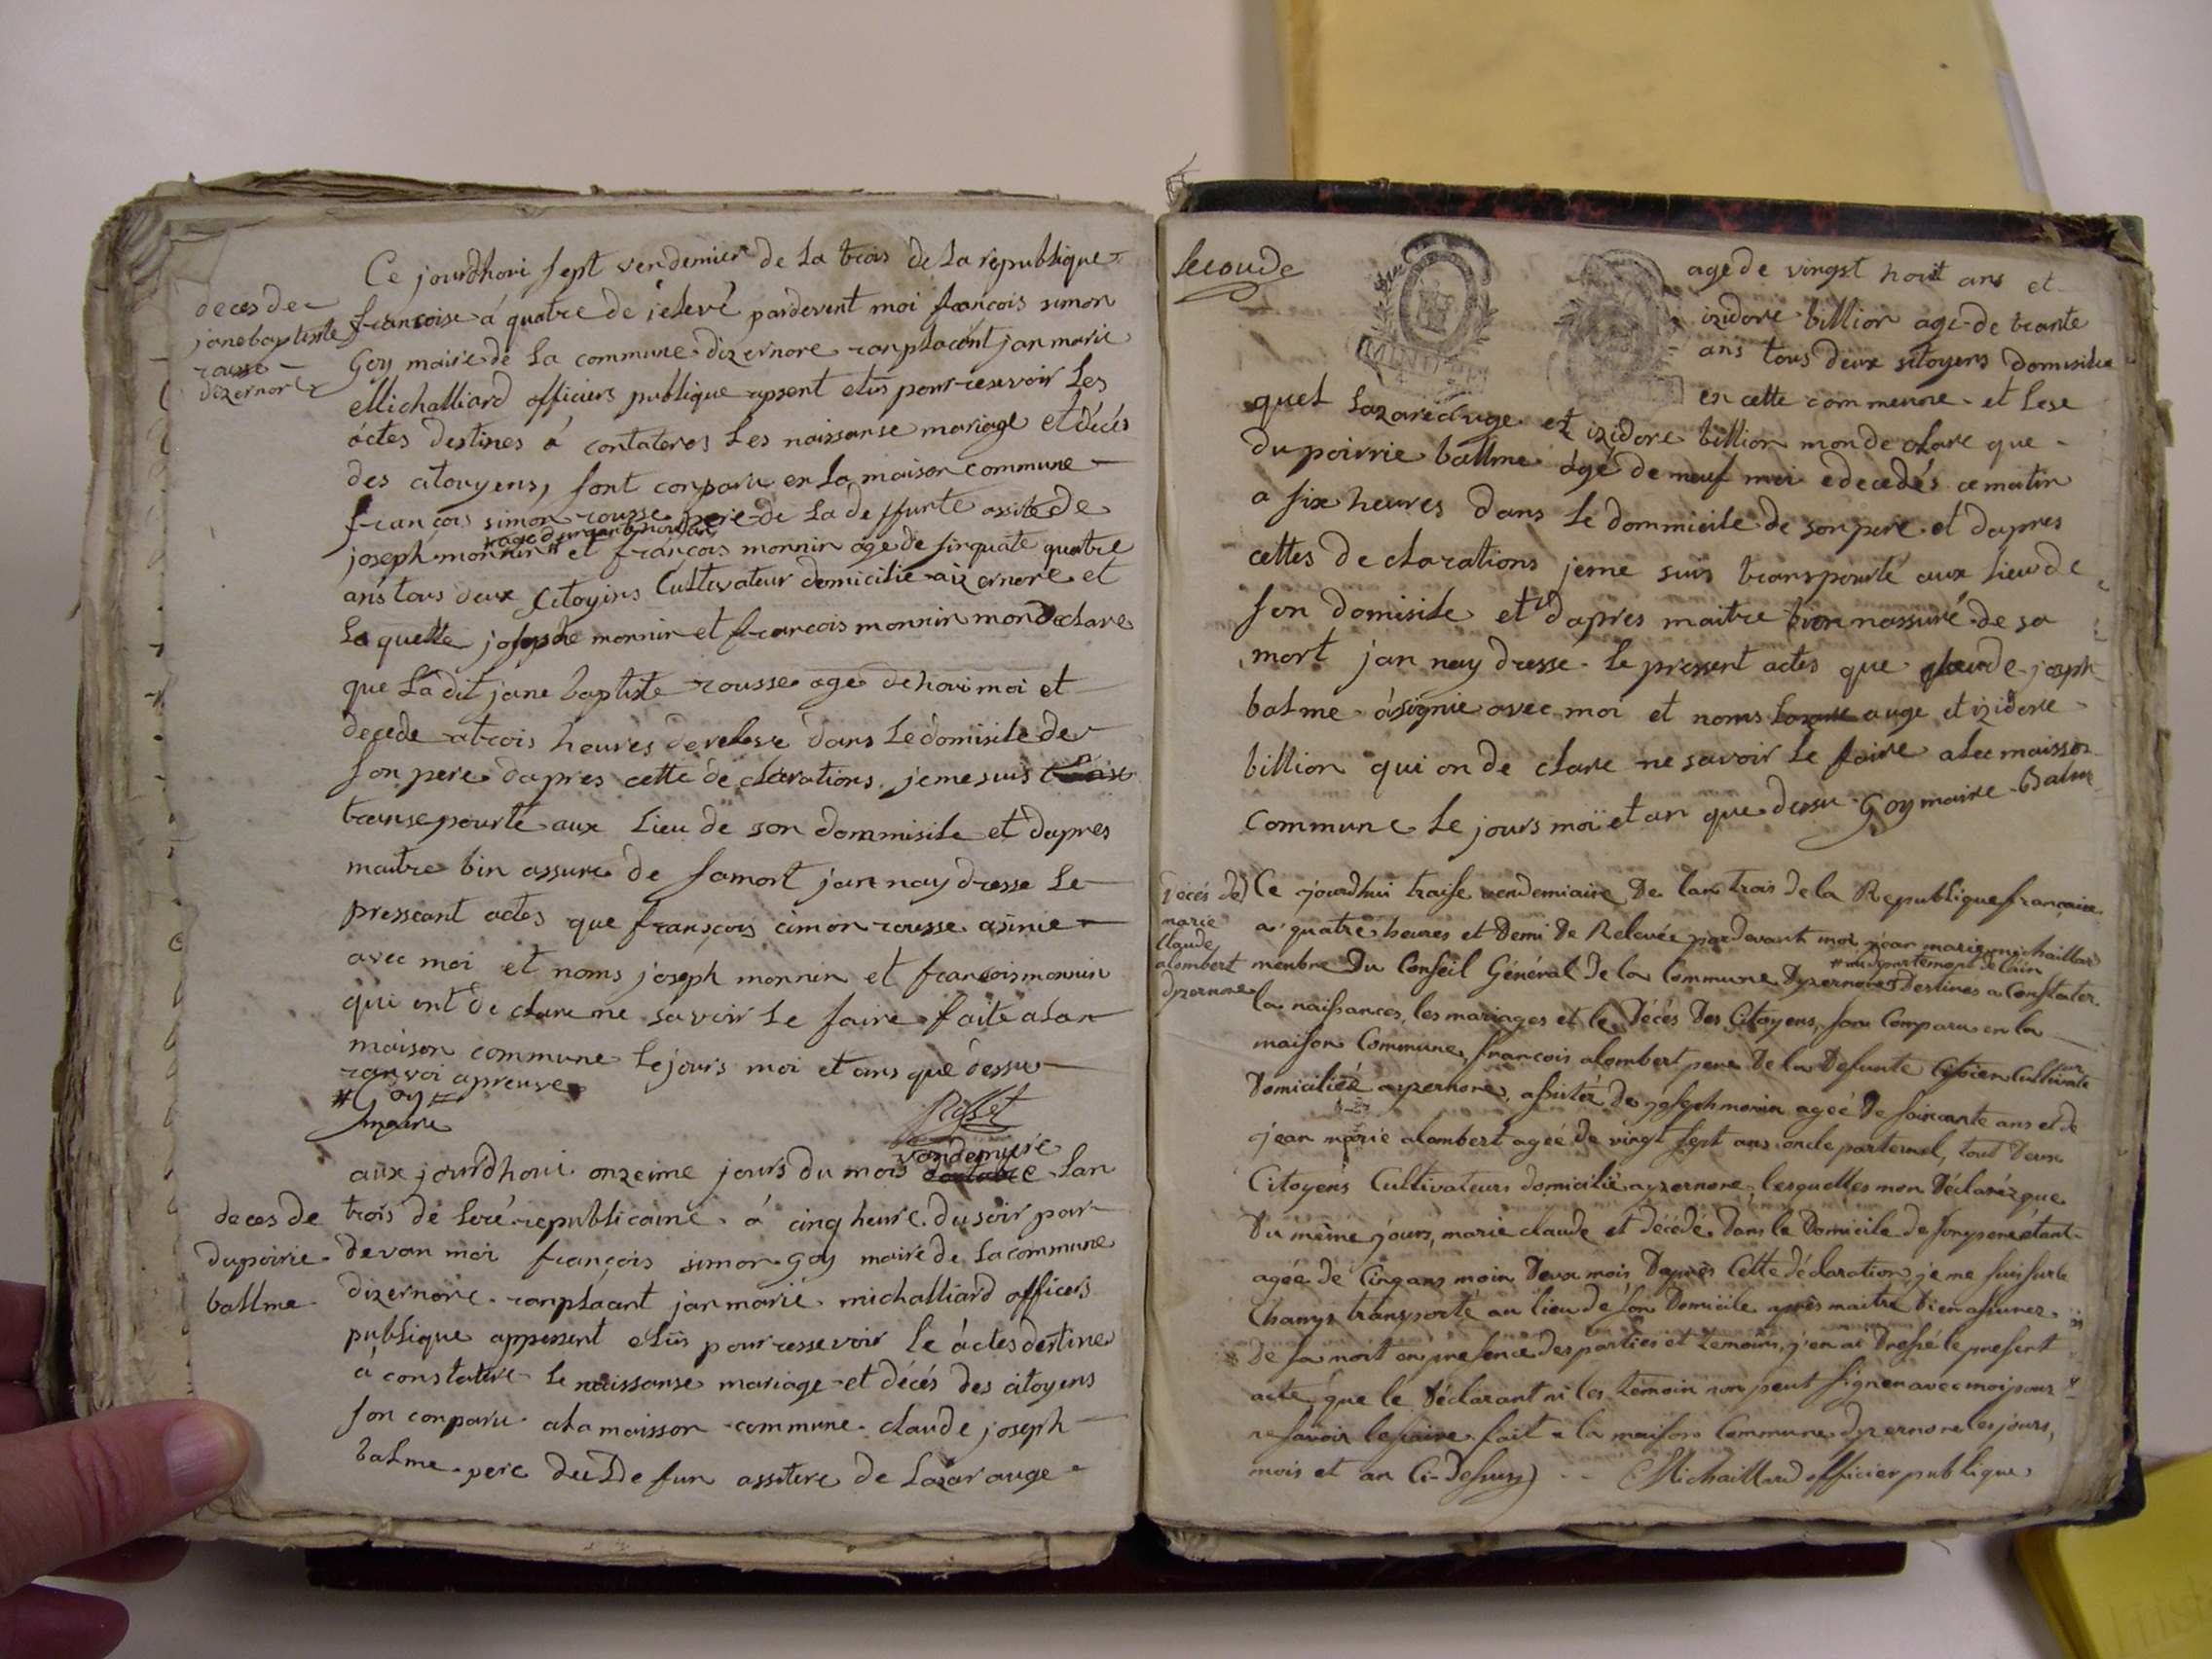 Ce jourdhoui sept vendemier de la trois de la republique
deces de
jane baptiste
rousse
dizernore
francoise á quatre de relevé pardevent moi francois simon
Goy maire de la commune dizernore ranplacent jan marie
Michalliard officiers publique apsent elus pour resevoir les
áctes destines á contateros les naissanse mariage et décés
des citouyens, sont conparu en la maison commune
françois simon rousse pere de la deffunte assite de
joseph monnin # et françois monnin age de sinquate quatre
ans tous deux sitoyins Cultivateur domicilie aizernore et
la quelle josephe monnin et francois monnin mon declare
que la dit jane baptiste rousse age de houi moi et
decede a trois heures de releve dans le domisile de
son pere dapres cette declarations je me suis
transepourte aux lieu de son dommisile et dapres
maitre bin assure de samort jan nay dresse le
pressant actes que françois cimon rousse asinie
avec moi et noms joseph monnin et francois monnin
qui ont de clare ne savoir le faire faite a lan
maison commune le jours moi et ans que dessu
ranvoi apreuve
# Goy #
maire
Rosset
vandemyire
aux jourdhoui onzeime jours du mois lan
deces de
dupoirie
ballme
trois de leré republicaine á cinq heure du soir par
devan moi françois simon Goy maire de la commune
dizernore ranplaant jan marie michalliard officirs
publique appessent elus pour ressevoir le áctes destine
á constatire le naissanse mariage et décés des citoyens
son conparu a la maisson commune claude joseph
balme pere du De fun assitere de Lazar auge
seconde
age de vingst houit ans et
izidore billion age de trante
ans tous deux sitoyens domisilie
en cette commeune et lese
quel Lazare auge et izidore billion mon de clare que
dupoirrie ballme ágé de neuf moi e decedés ce matin
a six heures dans le dommicile de son pere et dapres
cettes declarations je me suis transpourté aux lieu de
son domisile et dapres maitre bien nassuré de sa
mort jan nay dresse le pressent actes que claude joseph
balme á signie avec moi et noms Lazare auge et izidore
billion qui on de clare ne savoir le faire a lec maisson
commune le jours moï et an que dessu Goy maire Balme
décés de
marie
claude
alombert
dyzernore
Ce jourdhui traise vendemiaire De lan trois de la Republique francaise
a quatre heures et Demi De Relevée pardevant moi jean marie michaillard
# au departement de lain
membre Du Conseil Général De la Commune Dyzernore # Destines a Constater
la naissances, les mariages et le Décès Des Citoyens, son Comparu en la
maison Commune, francois alombert pere De la Defunte Citoien Cultivateur
Domicilié ayzernore, assité De joseph monin ageé De soixante ans et de
jean marie alombert ageé De vingt sept ans oncle parternel, tout Deux
Citoyens Cultivateurs domicilié ayzernore, lesquelles mon Déclaréz que
Du même jours, marie claude et décédé dans le Domicile de son pere étant
agée de Cinq ans moin Deux mois, Dapres Cette déclaration je me suis sur le
Champs transporté au lieu de son Domicile après maitre bien assurez
De sa mort en presence des parties et temoins, j'en ai Dressé le present
acte que le Déclarant ni les temoin non peut signer avec moi pour
ne savoir le faire fait a la maison Commune dyzernore les jours,
mois et an Ci-Dessus Michaillard officier publique